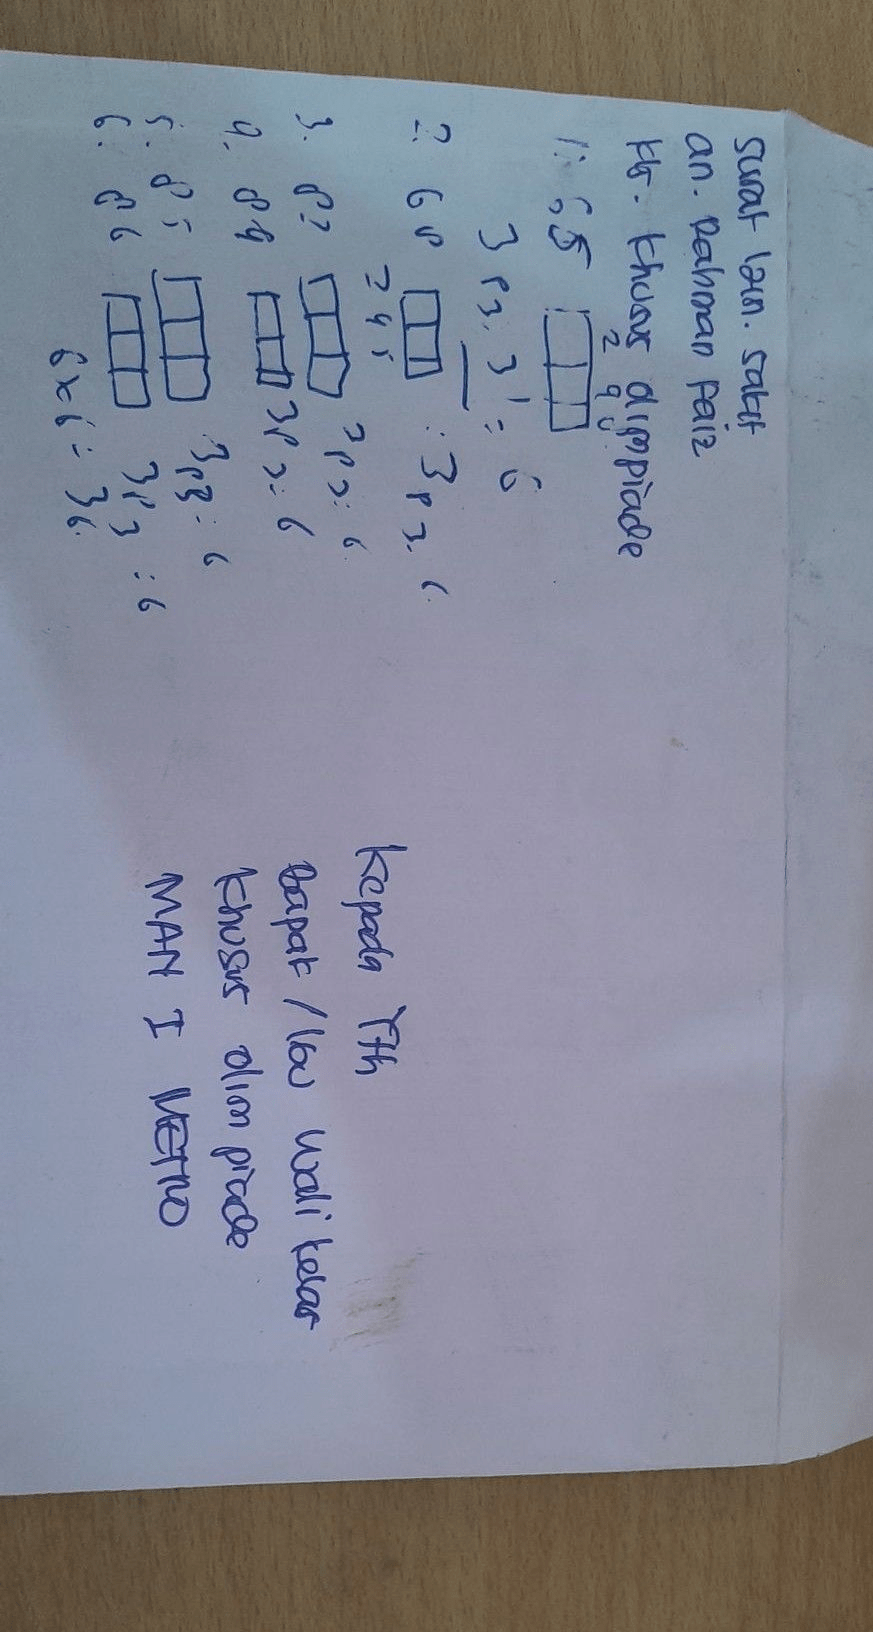 surat izin. sakit
an. Rahman Faiz
kls. khusus olimpiade
1. 65
2 4
3P3. 3! = 6
2. 68 : 3P3. 6.
2 4 5
3. 82 3P3 = 6.
4. 84 3P3 = 6
5. 85 3P3 = 6
6. 86 3P3 = 6
6x6 = 36.
Kepada Yth
Bapak / Ibu Wali kelas
Khusus olimpiade
MAN I METRO